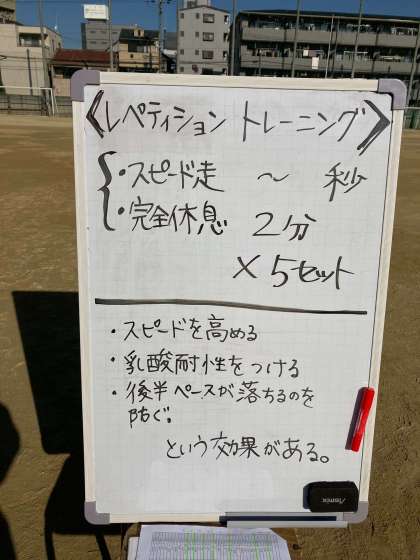 《レペティション トレーニング》
{・スピード走 〜 秒
・完全休息 2分
×5セット
・スピードを高める
・乳酸耐性をつける
・後半ペースが落ちるのを
防ぐ。
という効果がある。
Asmix